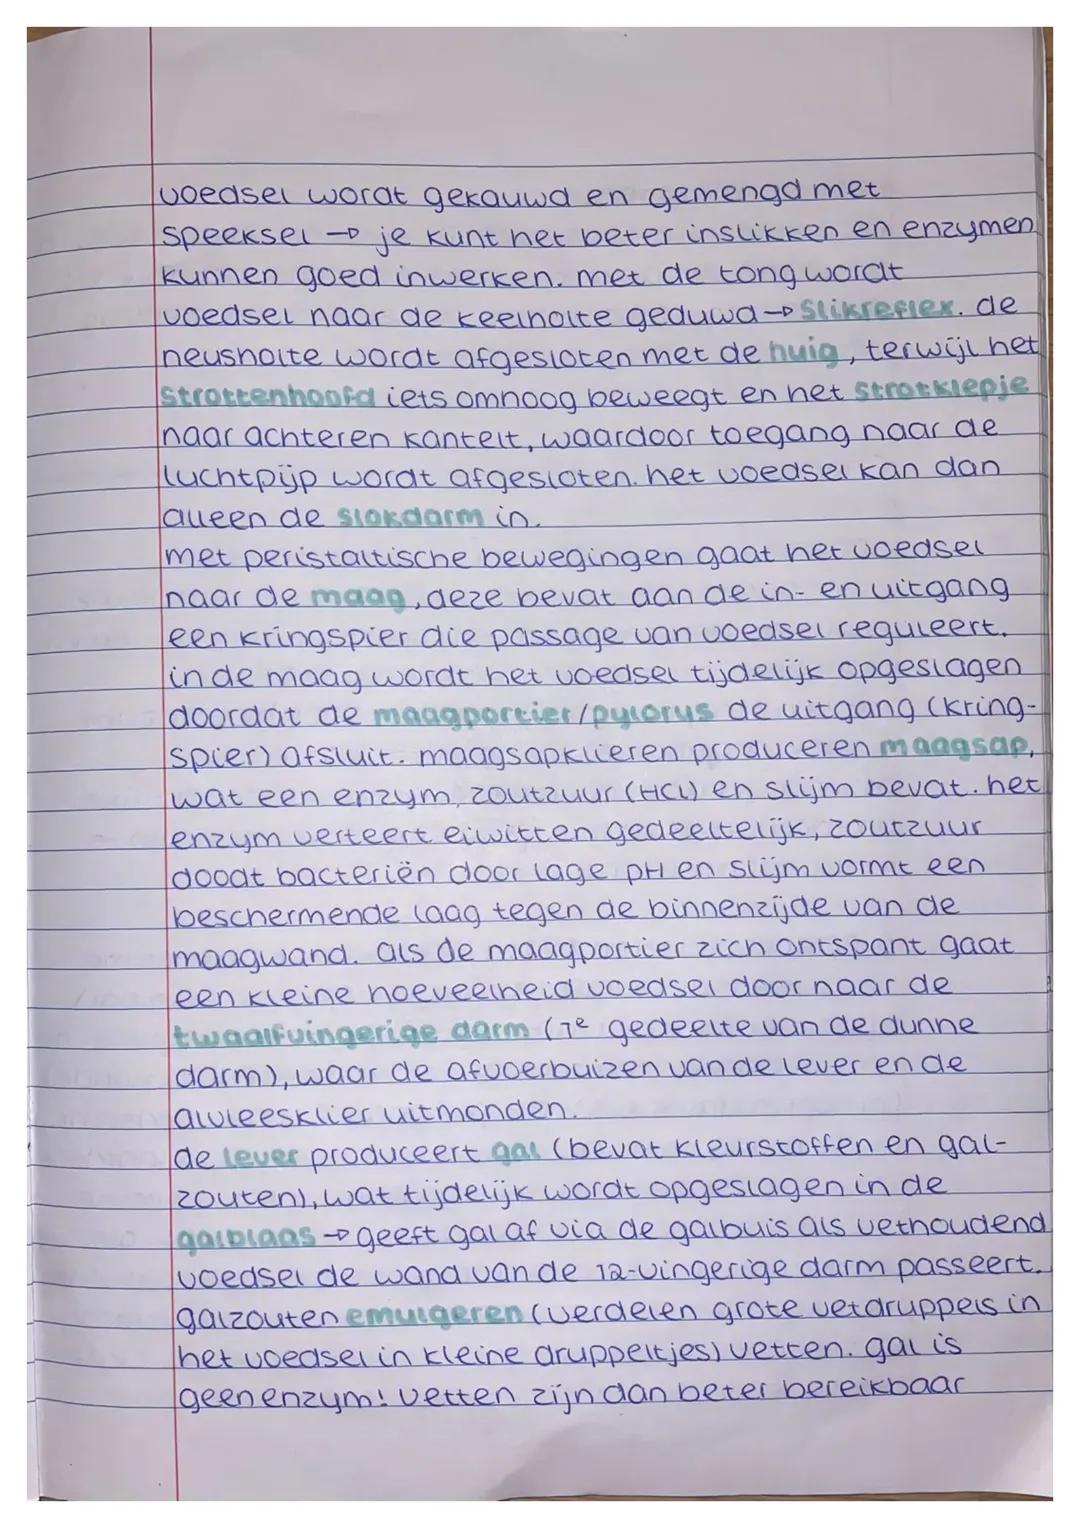 voedsel wordt gekauwd en gemengd met
speeksel → je kunt het beter inslikken en enzymen
kunnen goed inwerken. met de tong wordt
voedsel naar de keelholte geduwd → slikreflex. de
neusholte wordt afgesloten met de huig, terwijl het
strottenhoofd iets omhoog beweegt en het strotklepje
naar achteren kantelt, waardoor toegang naar de
luchtpijp wordt afgesloten. het voedsel kan dan
alleen de slokdarm in.
met peristaltische bewegingen gaat het voedsel
naar de maag, deze bevat aan de in- en uitgang
een kringspier die passage van voedsel reguleert.
in de maag wordt het voedsel tijdelijk opgeslagen
doordat de maagportier/pylorus de uitgang (kring-
spier) afsluit. maagsapklieren produceren maagsap,
wat een enzym, zoutzuur (HCl) en slijm bevat. het
enzym verteert eiwitten gedeeltelijk, zoutzuur
doodt bacteriën door lage pH en slijm vormt een
beschermende laag tegen de binnenzijde van de
maagwand. als de maagportier zich ontspant gaat
een kleine hoeveelheid voedsel door naar de
twaalfvingerige darm (1e gedeelte van de dunne
darm), waar de afvoerbuizen van de lever en de
alvleesklier uitmonden.
de lever produceert gal (bevat kleurstoffen en gal-
zouten), wat tijdelijk wordt opgeslagen in de
galblaas → geeft gal af via de galbuis als vethoudend
voedsel de wand van de 12-vingerige darm passeert.
galzouten emulgeren (verdelen grote vetdruppels in
het voedsel in kleine druppeltjes) vetten. gal is
geen enzym! vetten zijn dan beter bereikbaar